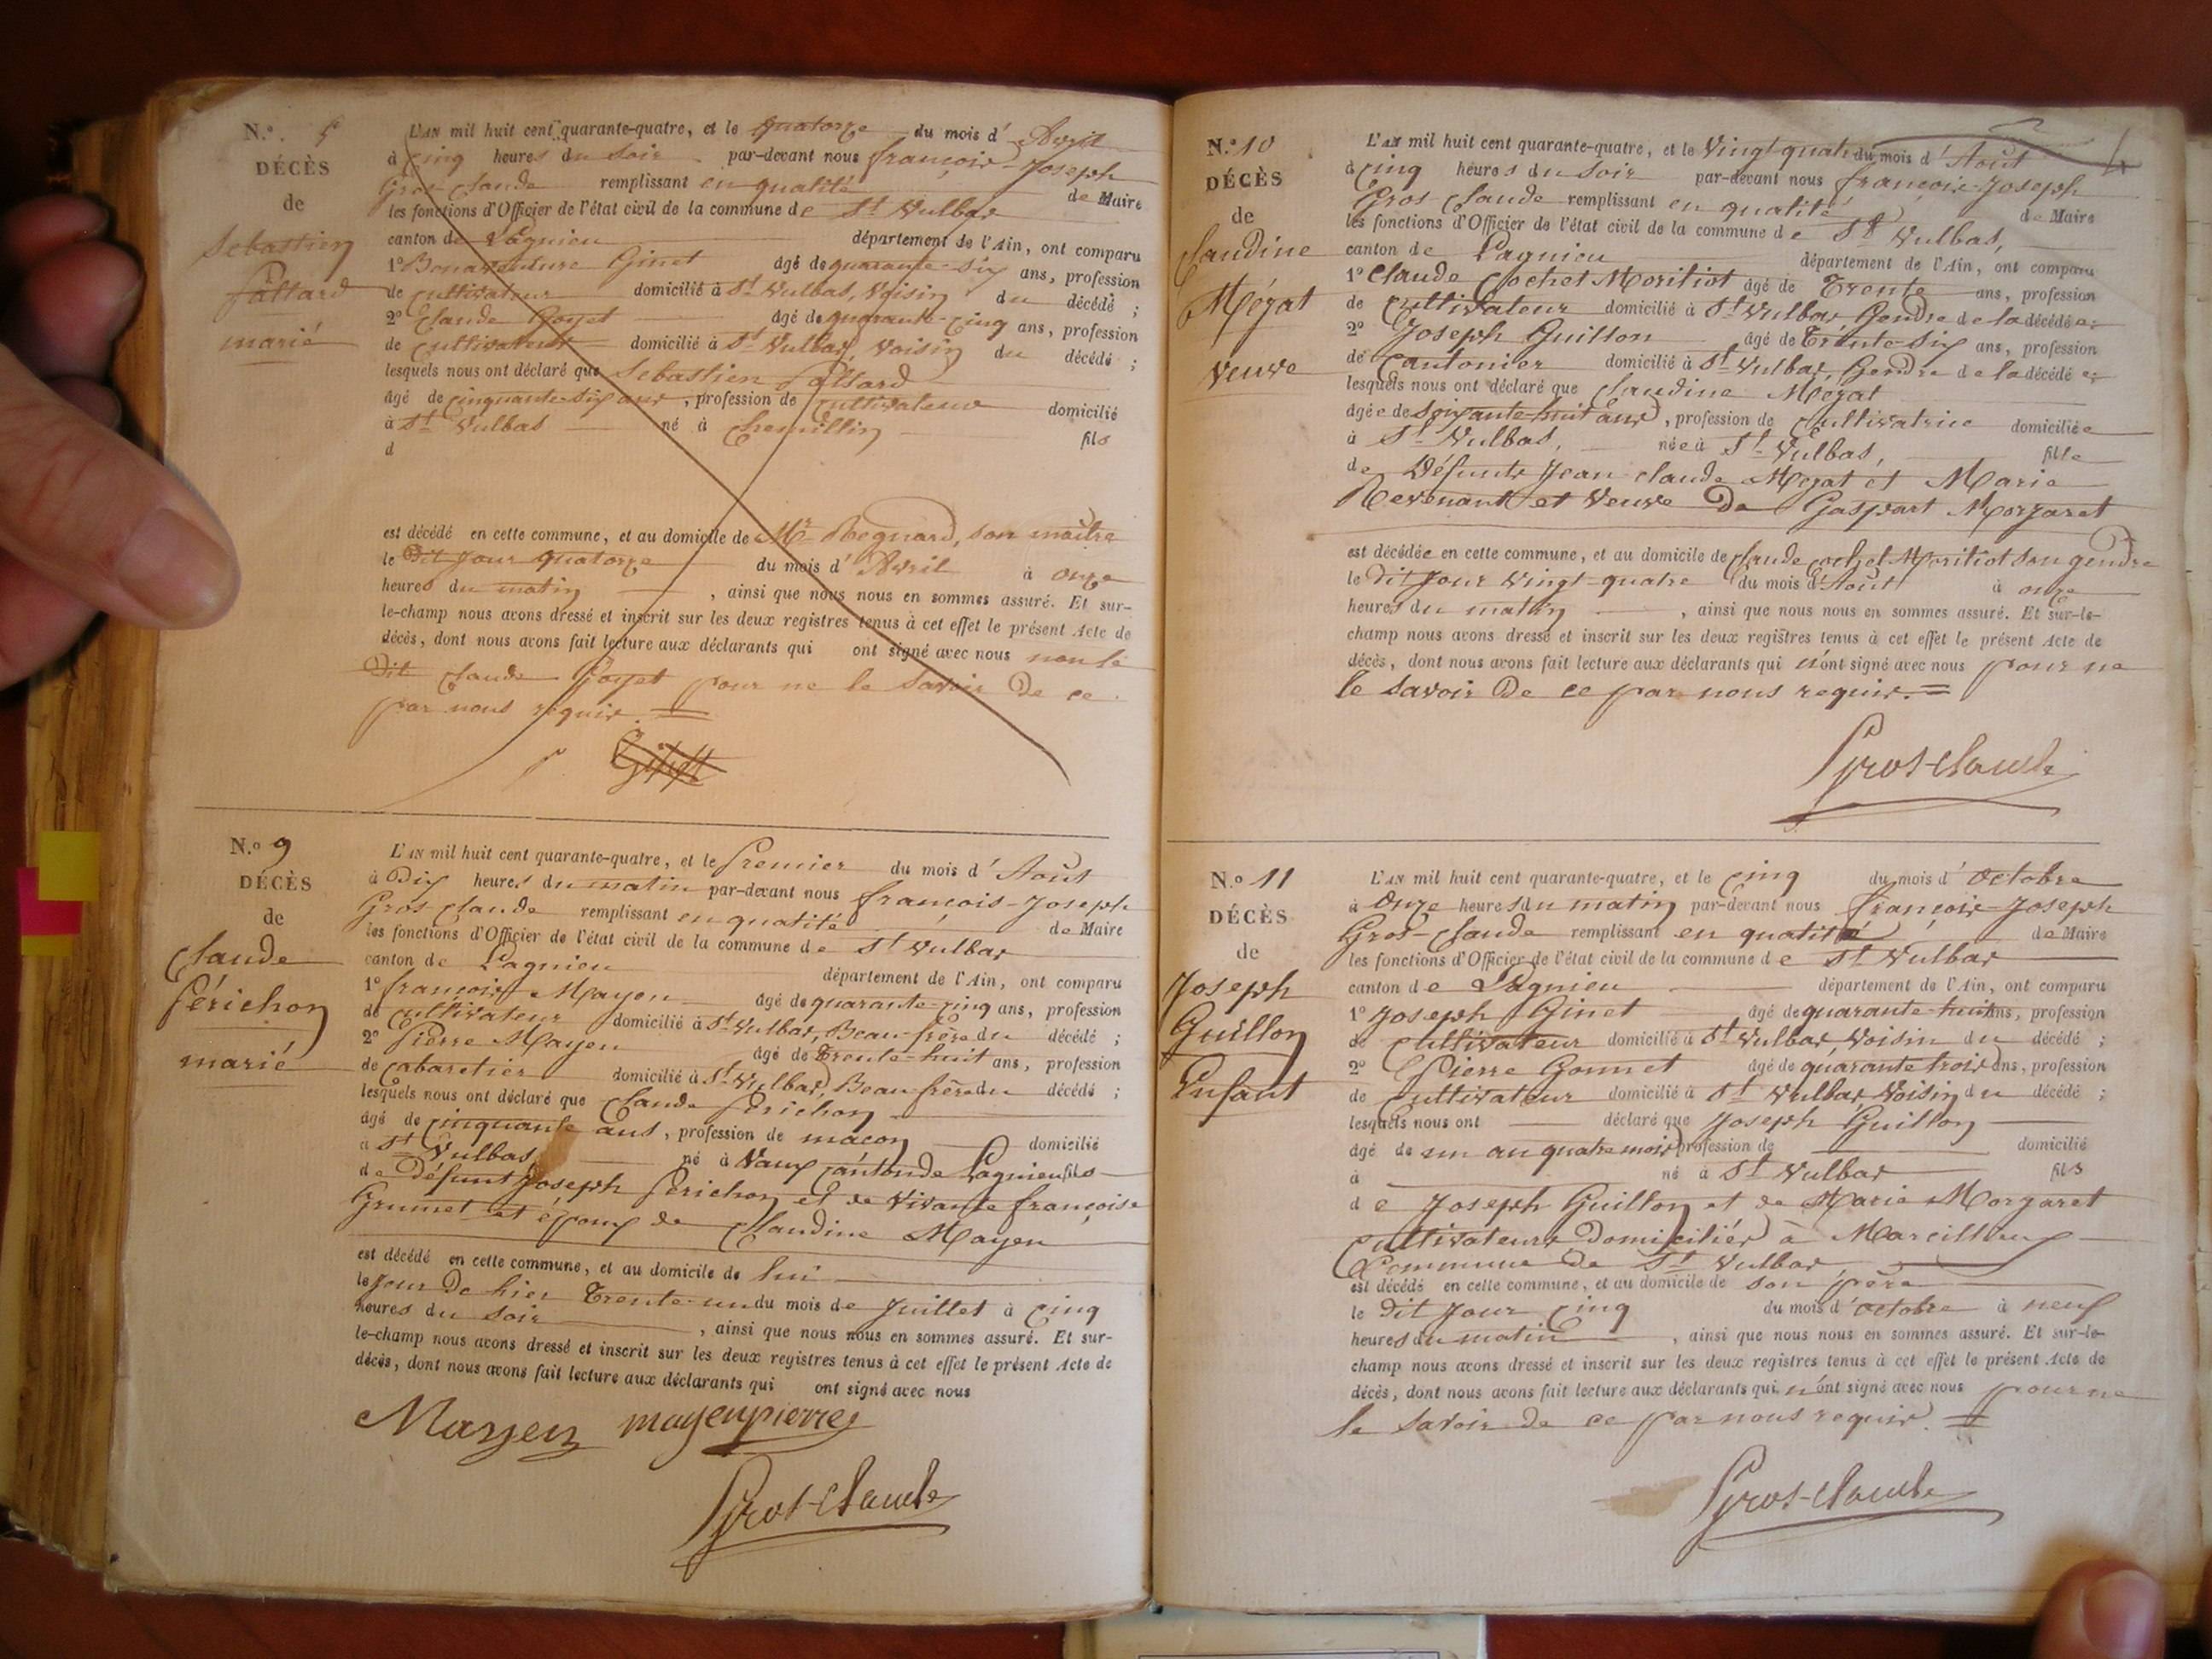 N.o 5
DÉCÈS
de
Sebastien
Pallard
marié
L'AN mil huit cent quarante-quatre, et le quatorze du mois d'Avril
à cinq heures du soir par-devant nous françois-Joseph
Gros-Claude remplissant en qualité de Maire
les fonctions d'Officier de l'état civil de la commune de St Vulbas
canton de Lagnieu département de l'Ain, ont comparu
1o Bonaventure Ginet âgé de quarante-six ans, profession
de cultivateur domicilié à St Vulbas, Voisin du décédé ;
2o Claude Goyet âgé de quarante-cinq ans, profession
de cultivateur domicilié à St Vulbas, Voisin du décédé ;
lesquels nous ont déclaré que Sebastien Pallard
âgé de cinquante-six ans, profession de cultivateur domicilié
à St Vulbas né à Chemillin fils
d
est décédé en cette commune, et au domicile de Mr Regnard, son maître
le dit Jour quatorze du mois d'Avril à onze
heures du matin , ainsi que nous nous en sommes assuré. Et sur-
le-champ nous avons dressé et inscrit sur les deux registres tenus à cet effet le présent Acte de
décès, dont nous avons fait lecture aux déclarants qui ont signé avec nous non le
dit Claude Goyet pour ne le savoir de ce
par nous requis.=
Ginet
N.o 9
DÉCÈS
de
Claude
Périchon
marié
L'AN mil huit cent quarante-quatre, et le Premier du mois d'Août
à Dix heures du matin par-devant nous françois-Joseph
Gros-Claude remplissant en qualité de Maire
les fonctions d'Officier de l'état civil de la commune de St Vulbas
canton de Lagnieu département de l'Ain, ont comparu
1o françois Mayen âgé de quarante-cinq ans, profession
de cultivateur domicilié à St Vulbas, Beau-frère du décédé ;
2o Pierre Mayen âgé de Trente-huit ans, profession
de cabaretier domicilié à St Vulbas, Beau-frère du décédé ;
lesquels nous ont déclaré que Claude Périchon
âgé de cinquante ans, profession de maçon domicilié
à St Vulbas, né à Vaux canton de Lagnieu fils
de Défunt Joseph Périchon et de Vivante françoise
Grumet et époux de Claudine Mayen
est décédé en cette commune, et au domicile de lui
le Jour De hier Trente-un du mois de Juillet à cinq
heures du soir , ainsi que nous nous en sommes assuré. Et sur-
le-champ nous avons dressé et inscrit sur les deux registres tenus à cet effet le présent Acte de
décès, dont nous avons fait lecture aux déclarants qui ont signé avec nous
Mayen mayen pierre
Gros-Claude
N.o 10
DÉCÈS
de
Claudine
Mégat
veuve
L'AN mil huit cent quarante-quatre, et le Vingt-quatre du mois d'Août
à cinq heures du soir par-devant nous françois-Joseph
Gros-Claude remplissant en qualité de Maire
les fonctions d'Officier de l'état civil de la commune de St Vulbas,
canton de Lagnieu département de l'Ain, ont comparu
1o Claude Cochet Moritiot âgé de Trente ans, profession
de Cultivateur domicilié à St Vulbas Gendre de la décédée ;
2o Joseph Guillon âgé de Trente-six ans, profession
de Cantonier domicilié à St Vulbas, Gendre de la décédée ;
lesquels nous ont déclaré que Claudine Mégat
âgée de soixante-huit ans, profession de Cultivatrice domiciliée
à St Vulbas, née à St Vulbas, fille
de Défunts Jean-Claude Mégat et Marie
Revenant et Veuve De Gaspart Morgaret
est décédée en cette commune, et au domicile de Claude Cochet Moritiot son gendre
le dit Jour Vingt-quatre du mois d'Août à onze
heures du matin , ainsi que nous nous en sommes assuré. Et sur-le-
champ nous avons dressé et inscrit sur les deux registres tenus à cet effet le présent Acte de
décès, dont nous avons fait lecture aux déclarants qui n'ont signé avec nous pour ne
le savoir De ce par nous requis.=
Gros-Claude
N.o 11
DÉCÈS
de
Joseph
Guillon
Enfant
L'AN mil huit cent quarante-quatre, et le cinq du mois d'octobre
à Onze heures du matin par-devant nous françois-Joseph
Gros-Claude remplissant en qualité de Maire
les fonctions d'Officier de l'état civil de la commune de St Vulbas
canton de Lagnieu département de l'Ain, ont comparu
1o Joseph Ginet âgé de quarante-huit ans, profession
de cultivateur domicilié à St Vulbas Voisin du décédé ;
2o Pierre Gonnet âgé de quarante trois ans, profession
de cultivateur domicilié à St Vulbas, Voisin du décédé ;
lesquels nous ont déclaré que Joseph Guillon
âgé de un an quatre mois profession de domicilié
à né à St Vulbas fils
de Joseph Guillon et de Marie Morgaret
cultivateurs domiciliés à Marcillieux
Commune De St Vulbas
est décédé en cette commune, et au domicile de son père
le dit Jour cinq du mois d'octobre à neuf
heures du matin , ainsi que nous nous en sommes assuré. Et sur-le-
champ nous avons dressé et inscrit sur les deux registres tenus à cet effet le présent Acte de
décès, dont nous avons fait lecture aux déclarants qui n'ont signé avec nous pour ne
le savoir de ce par nous requis.=
Gros-Claude